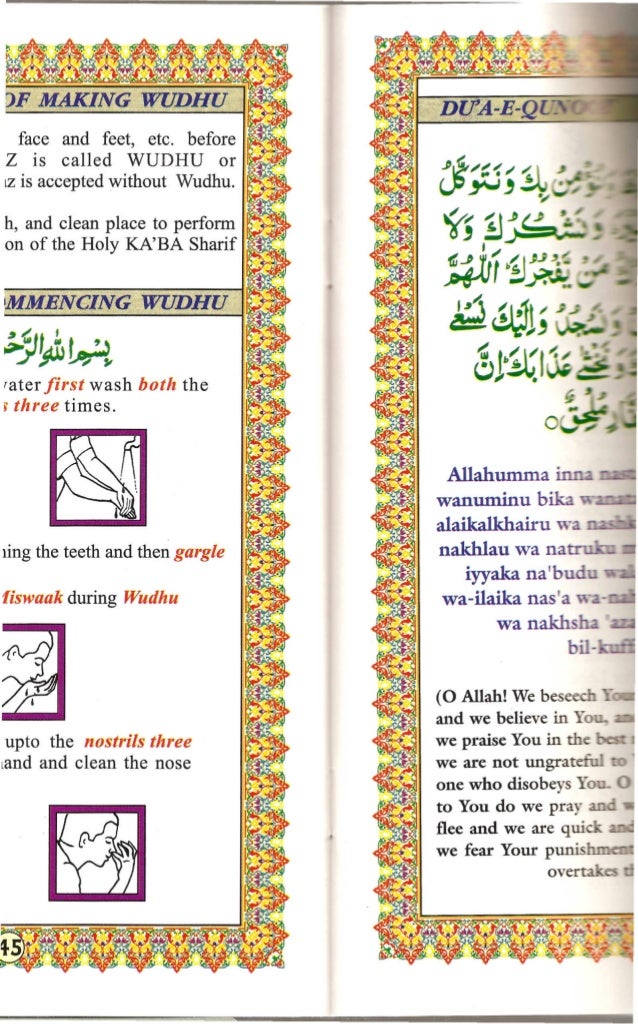 OF MAKING WUDHU
face and feet, etc. before
Z is called WUDHU or
is accepted without Wudhu.
h, and clean place to perform
on of the Holy KA'BA Sharif
MMENCING WUDHU
بِسْمِ اللهِ الرَّحْ
ater first wash both the
s three times.
ing the teeth and then gargle
Miswaak during Wudhu
upto the nostrils three
and and clean the nose
45
DU'A-E-QUNO
وَنُؤْمِنُ بِكَ وَنَتَوَكَّلُ
وَنَشْكُرُكَ وَلَا
مَنْ يَّفْجُرُكَ اَللّٰهُمَّ
وَنَسْجُدُ وَاِلَيْكَ نَسْعٰى
وَنَخْشٰى عَذَابَكَ اِنَّ
مُلْحِقٌ
Allahumma inna nast
wanuminu bika wanat
alaikalkhairu wa nashk
nakhlau wa natruku m
iyyaka na'budu wal
wa-ilaika nas'a wa-nah
wa nakhsha 'aza
bil-kuff
(O Allah! We beseech You
and we believe in You, an
we praise You in the best
we are not ungrateful to
one who disobeys You. O
to You do we pray and w
flee and we are quick and
we fear Your punishment
overtakes th